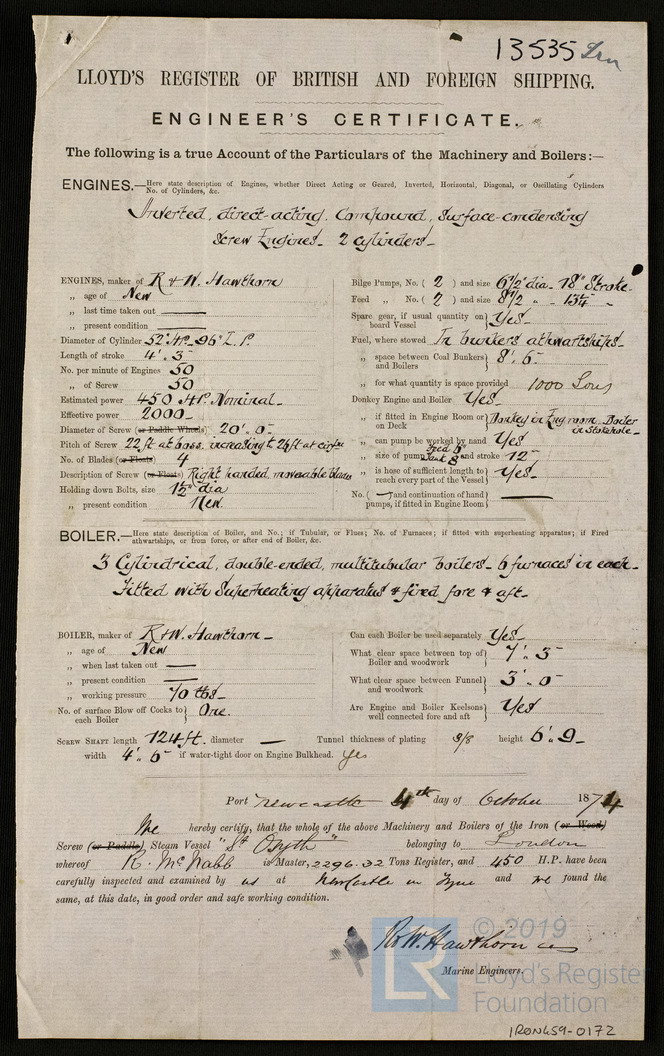 13535 Lrn
LLOYD'S REGISTER OF BRITISH AND FOREIGN SHIPPING.
ENGINEER'S CERTIFICATE.
The following is a true Account of the Particulars of the Machinery and Boilers:—
ENGINES.—Here state description of Engines, whether Direct Acting or Geared, Inverted, Horizontal, Diagonal, or Oscillating Cylinders
No. of Cylinders, &c.
Inverted, direct-acting, Compound, Surface-condensing
Screw Engines— 2 cylinders—
ENGINES, maker of R & W. Hawthorn
„ age of New
„ last time taken out ——
„ present condition ——
Diameter of Cylinder 52" H.P.— 96" L.P.
Length of stroke 4'. 3"
No. per minute of Engines 50
„ of Screw 50
Estimated power 450 H.P. Nominal—
Effective power 2000—
Diameter of Screw (or Paddle Wheels) 20'. 0"
Pitch of Screw 22 ft at boss increasing to 24 ft at circfe
No. of Blades (or Floats) 4
Description of Screw (or Floats) Right handed, moveable blades
Holding down Bolts, size 1½" dia
„ present condition New.
Bilge Pumps, No. ( 2 ) and size 6½" dia— 18" Stroke—
Feed „ No. ( 2 ) and size 8½ " — 13¼ —
Spare gear, if usual quantity on board Vessel} Yes—
Fuel, where stowed In bunkers athwartships—
„ space between Coal Bunkers and Boilers} 8'. 6"
„ for what quantity is space provided 1000 Tons
Donkey Engine and Boiler Yes—
„ if fitted in Engine Room or on Deck} Donkey in Eng room. Boiler in Stokehole—
„ can pump be worked by hand Yes
„ size of pump Feed 6" Tank 8" and stroke 12"
„ is hose of sufficient length to reach every part of the Vessel} Yes—
No. ( — ) and continuation of hand pumps, if fitted in Engine Room} ——
BOILER.—Here state description of Boiler, and No.; if Tubular, or Flues; No. of Furnaces; if fitted with superheating apparatus; if Fired
athwartships, or from fore, or after end of Boiler, &c.
3 Cylindrical, double-ended, multitubular boilers— 6 furnaces in each—
Fitted with Superheating apparatus & fired fore & aft—
BOILER, maker of R & W. Hawthorn—
„ age of New
„ when last taken out ——
„ present condition ——
„ working pressure 70 lbs—
No. of surface Blow off Cocks to each Boiler} One.
Can each Boiler be used separately Yes—
What clear space between top of Boiler and woodwork} 7'. 3"
What clear space between Funnel and woodwork} 3'. 0"
Are Engine and Boiler Keelsons well connected fore and aft} Yes
SCREW SHAFT length 124 ft. diameter — Tunnel thickness of plating 3/8 height 6'. 9—
width 4'. 6" if water-tight door on Engine Bulkhead. Yes
Port Newcastle 4th day of October 1874
We hereby certify, that the whole of the above Machinery and Boilers of the Iron (or Wood)
Screw (or Paddle), Steam Vessel "St Osyth" belonging to London
whereof R. Mc Nabb is Master, 2296.32 Tons Register, and 450 H.P. have been
carefully inspected and examined by us at Newcastle on Tyne and we found the
same, at this date, in good order and safe working condition.
R & W. Hawthorn
Marine Engineers.
© 2019
LR
Lloyd's Register
Foundation
IRON459-0172